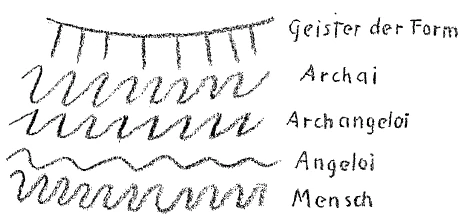 Geister der Form
Archai
Archangeloi
Angeloi
Mensch